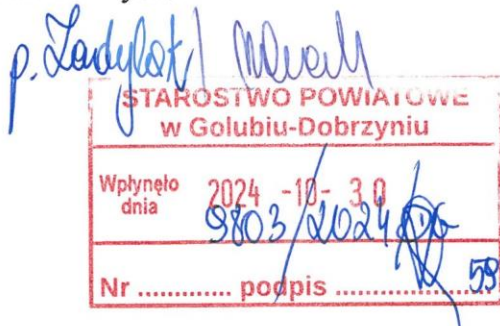 p. Zadylak
STAROSTWO POWIATOWE
w Golubiu-Dobrzyniu
Wpłynęło
dnia 2024 -10- 30
9803/2024
Nr ............. podpis .................... 59